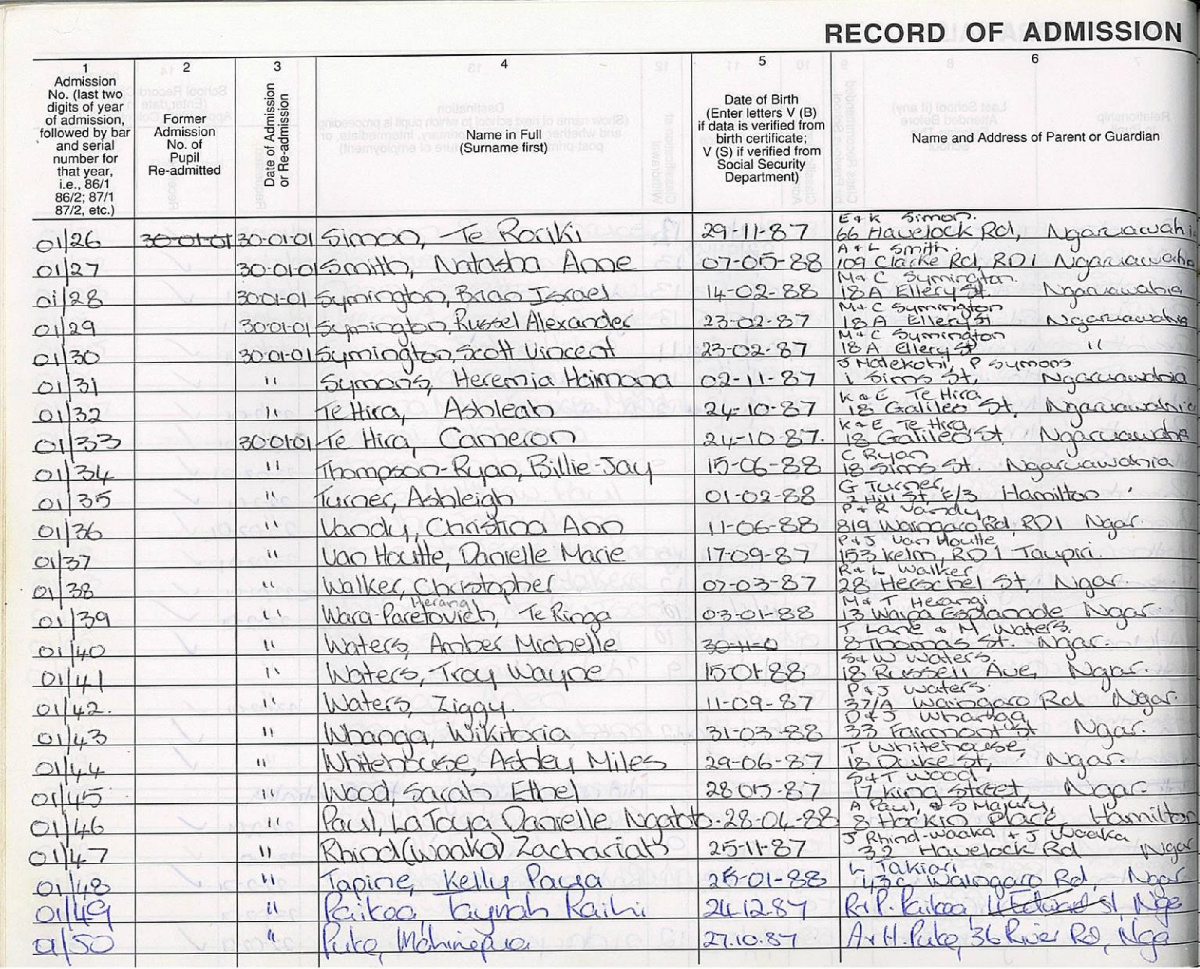 RECORD OF ADMISSION
1
Admission
No. (last two
digits of year
of admission,
followed by bar
and serial
number for
that year,
i.e., 86/1
86/2; 87/1
87/2, etc.)
2
Former
Admission
No. of
Pupil
Re-admitted
3
Date of Admission
or Re-admission
4
Name in Full
(Surname first)
5
Date of Birth
(Enter letters V (B)
if data is verified from
birth certificate;
V (S) if verified from
Social Security
Department)
6
Name and Address of Parent or Guardian
E & K Simon.
01/26 30-01-01 30-01-01 Simon, Te Roriki 29-11-87 66 Havelock Rd, Ngaruawahia
A & L Smith.
01/27 30-01-01 Smith, Natasha Anne 07-05-88 109 Clarke Rd, RD1 Ngaruawahia
M & C Symington.
01/28 30-01-01 Symington, Brian Israel 14-02-88 18A Ellery St. Ngaruawahia
M & C Symington
01/29 30-01-01 Symington, Russel Alexander 23-02-87 18A Ellery St Ngaruawahia
M & C Symington
01/30 30-01-01 Symington, Scott Vincent 23-02-87 18A Ellery St "
J P Symons
01/31 " Symons, Heremia Haimona 02-11-87 1 Sims St, Ngaruawahia
K & E Te Hira,
01/32 " Te Hira, Ashleah 24-10-87 18 Galileo St. Ngaruawahia
K & E Te Hira,
01/33 30-01-01 Te Hira, Cameron 24-10-87. 18 Galileo St Ngaruawahia
C Ryan
01/34 " Thompson-Ryan, Billie-Jay 15-06-88 18 Sims St. Ngaruawahia
G Turner,
01/35 " Turner, Ashleigh 01-02-88 2 Hill St, E/3 Hamilton
P & R Vandy
01/36 " Vandy, Christina Ann 11-06-88 819 Waingaro Rd, RD1 Ngar.
P & J Van Houtte
01/37 " Van Houtte, Danielle Marie 17-09-87 153 Kelm, RD1 Taupiri.
R & L Walker
01/38 " Walker, Christopher 07-03-87 28 Herschel St, Ngar.
Herangi M & T Herangi
01/39 " Wara-Paretovich, Te Ringa 03-01-88 13 Waipa Esplanade Ngar.
T Lane & M Waters.
01/40 " Waters, Amber Michelle 30-11-0 8 Thomas St. Ngar.
S & W Waters.
01/41 " Waters, Troy Wayne 15-01-88 18 Russell Ave, Ngar.
P & J Waters.
01/42. " Waters, Ziggy. 11-09-87 37/A Waingaro Rd Ngar.
D & J Whanga
01/43 " Whanga, Wikitoria 31-03-88 33 Fairmont St Ngar.
T Whitehouse,
01/44 " Whitehouse, Ashley Miles 29-06-87 18 Duke St, Ngar.
S & T Wood
01/45 " Wood, Sarah Ethel 28-05-87 17 King Street, Ngar.
A Paul, & S
01/46 " Paul, LaToya Danielle 28-04-88 8 Hockin Place, Hamilton
J Rhind-Waaka & J Waaka
01/47 " Rhind (Waaka) Zachariah 25-11-87 32 Havelock Rd Ngar
L Takiari
01/48 " Tapine, Kelly Paya 25-01-88 43c Waingaro Rd, Ngar
01/49 " Paikea, Taynah Raihi 24-12-87 R & P. Paikea, 4 Edward St, Nga
01/50 " Puke, Mahinepua 27.10.87 A & H. Puke, 36 River Rd, Nga